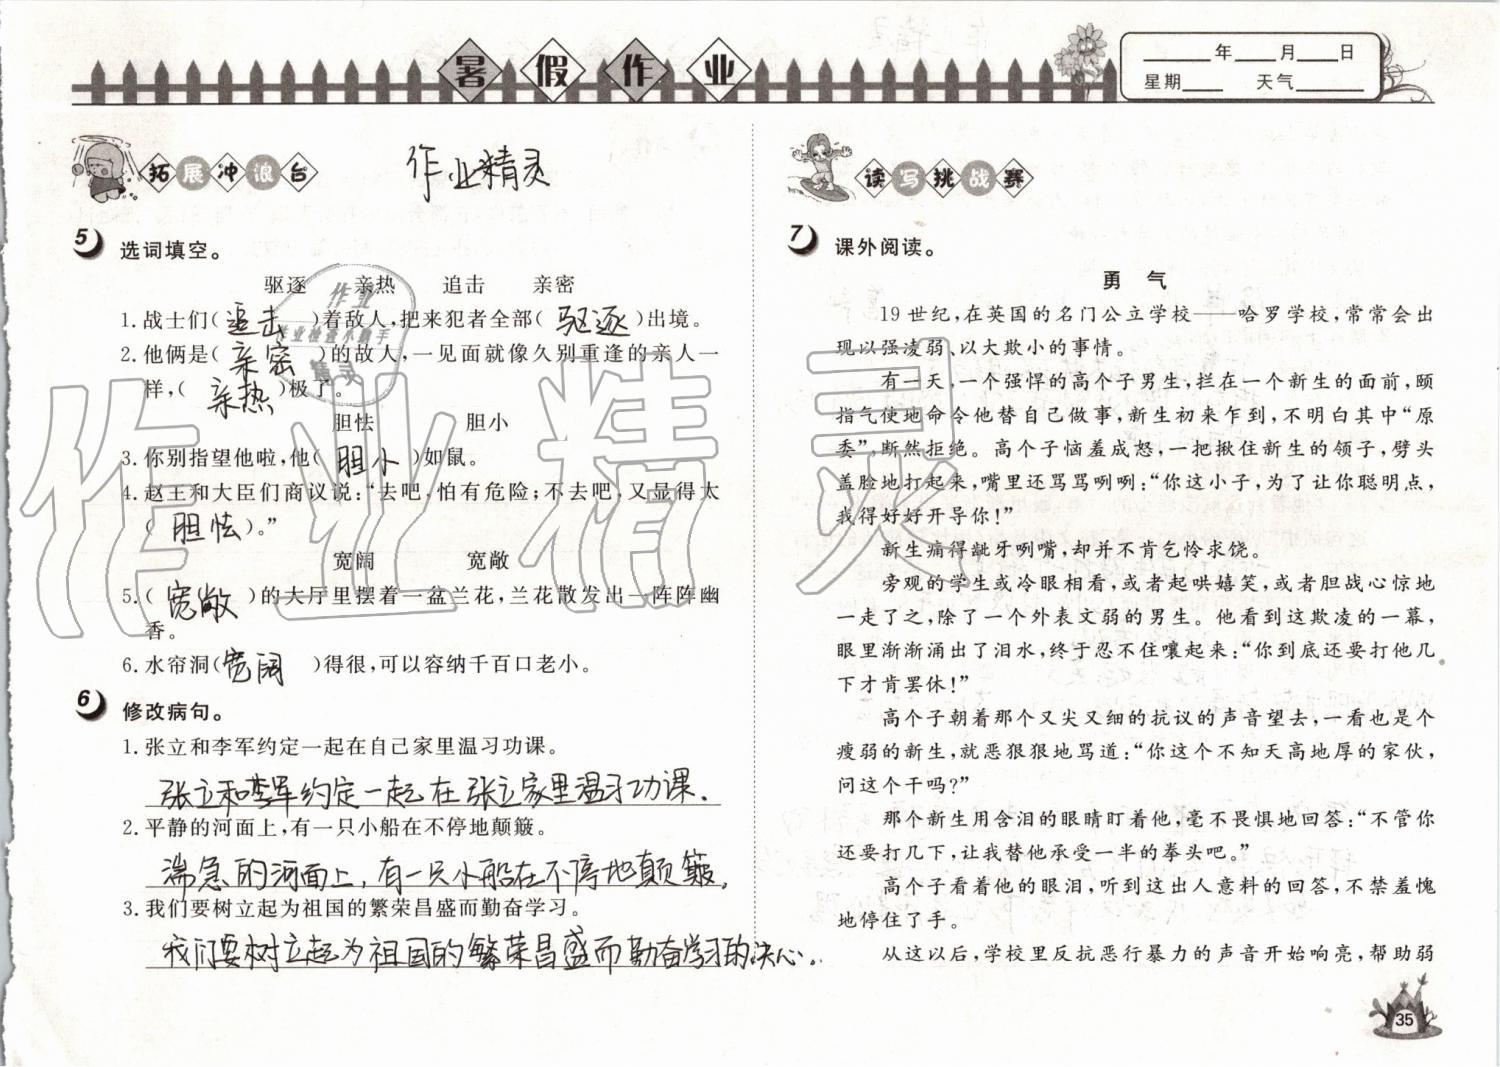 暑假作业
____年____月____日
星期____ 天气______
拓展冲浪台
作业精灵
5 选词填空。
驱逐 亲热 追击 亲密
1.战士们( 追击 )着敌人,把来犯者全部( 驱逐 )出境。
2.他俩是( 亲密 )的故人,一见面就像久别重逢的亲人一
样,( 亲热 )极了。
胆怯 胆小
3.你别指望他啦,他( 胆小 )如鼠。
4.赵王和大臣们商议说:“去吧,怕有危险;不去吧,又显得太
( 胆怯 )。”
宽阔 宽敞
5.( 宽敞 )的大厅里摆着一盆兰花,兰花散发出一阵阵幽
香。
6.水帘洞( 宽阔 )得很,可以容纳千百口老小。
6 修改病句。
1.张立和李军约定一起在自己家里温习功课。
张立和李军约定一起在张立家里温习功课.
2.平静的河面上,有一只小船在不停地颠簸。
湍急的河面上,有一只小船在不停地颠簸.
3.我们要树立起为祖国的繁荣昌盛而勤奋学习。
我们要树立起为祖国的繁荣昌盛而勤奋学习的决心。
读写挑战赛
7 课外阅读。
勇 气
19世纪,在英国的名门公立学校——哈罗学校,常常会出
现以强凌弱、以大欺小的事情。
有一天,一个强悍的高个子男生,拦在一个新生的面前,颐
指气使地命令他替自己做事,新生初来乍到,不明白其中“原
委”,断然拒绝。高个子恼羞成怒,一把揪住新生的领子,劈头
盖脸地打起来,嘴里还骂骂咧咧:“你这小子,为了让你聪明点,
我得好好开导你!”
新生痛得龇牙咧嘴,却并不肯乞怜求饶。
旁观的学生或冷眼相看,或者起哄嬉笑,或者胆战心惊地
一走了之,除了一个外表文弱的男生。他看到这欺凌的一幕,
眼里渐渐涌出了泪水,终于忍不住嚷起来:“你到底还要打他几
下才肯罢休!”
高个子朝着那个又尖又细的抗议的声音望去,一看也是个
瘦弱的新生,就恶狠狠地骂道:“你这个不知天高地厚的家伙,
问这个干吗?”
那个新生用含泪的眼睛盯着他,毫不畏惧地回答:“不管你
还要打几下,让我替他承受一半的拳头吧。”
高个子看着他的眼泪,听到这出人意料的回答,不禁羞愧
地停住了手。
从这以后,学校里反抗恶行暴力的声音开始响亮,帮助弱
35
作业精灵
作业
作业检查小助手
精灵